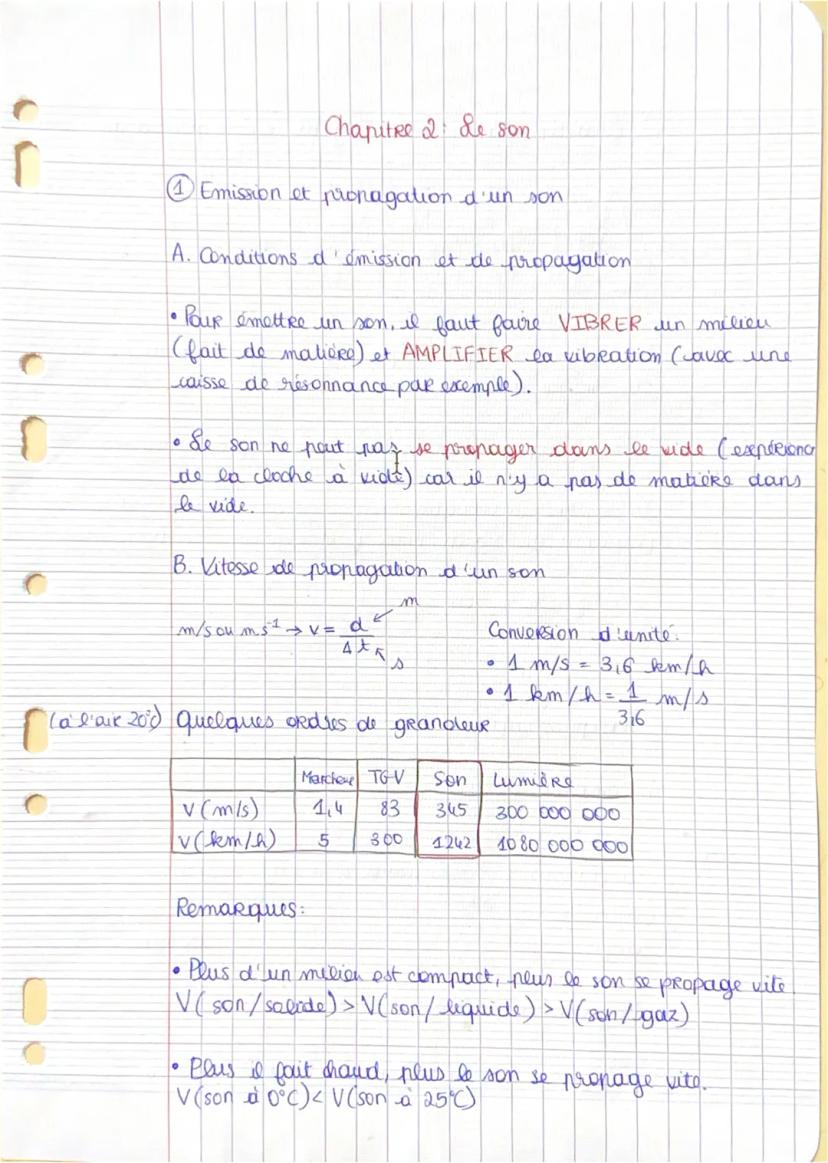 Chapitre 2: Le son
① Emission et propagation d'un son
A. Conditions d'émission et de propagation
• Pour émettre un son, il faut faire VIBRER un milieu
(fait de matière) et AMPLIFIER la vibration (avec une
caisse de résonnance par exemple).
• Le son ne peut pas se propager dans le vide (expérienc
de la cloche à vide) car il n'y a pas de matière dans
le vide.
B. Vitesse de propagation d'un son
m/s ou m s⁻¹ → v = d/Δt ← m ← s
Conversion d'unité:
• 1 m/s = 3,6 km/h
• 1 km/h = 1/3,6 m/s
(à l'air 20°) Quelques ordres de grandeur
Marcheur TGV Son Lumière
V (m/s) 1,4 83 345 300 000 000
V (km/h) 5 300 1242 1080 000 000
Remarques:
• Plus d'un milieu est compact, plus le son se propage vite
V(son/solide) > V(son/liquide) > V(son/gaz)
• Plus il fait chaud, plus le son se propage vite.
V(son à 0°C) < V(son à 25°C)